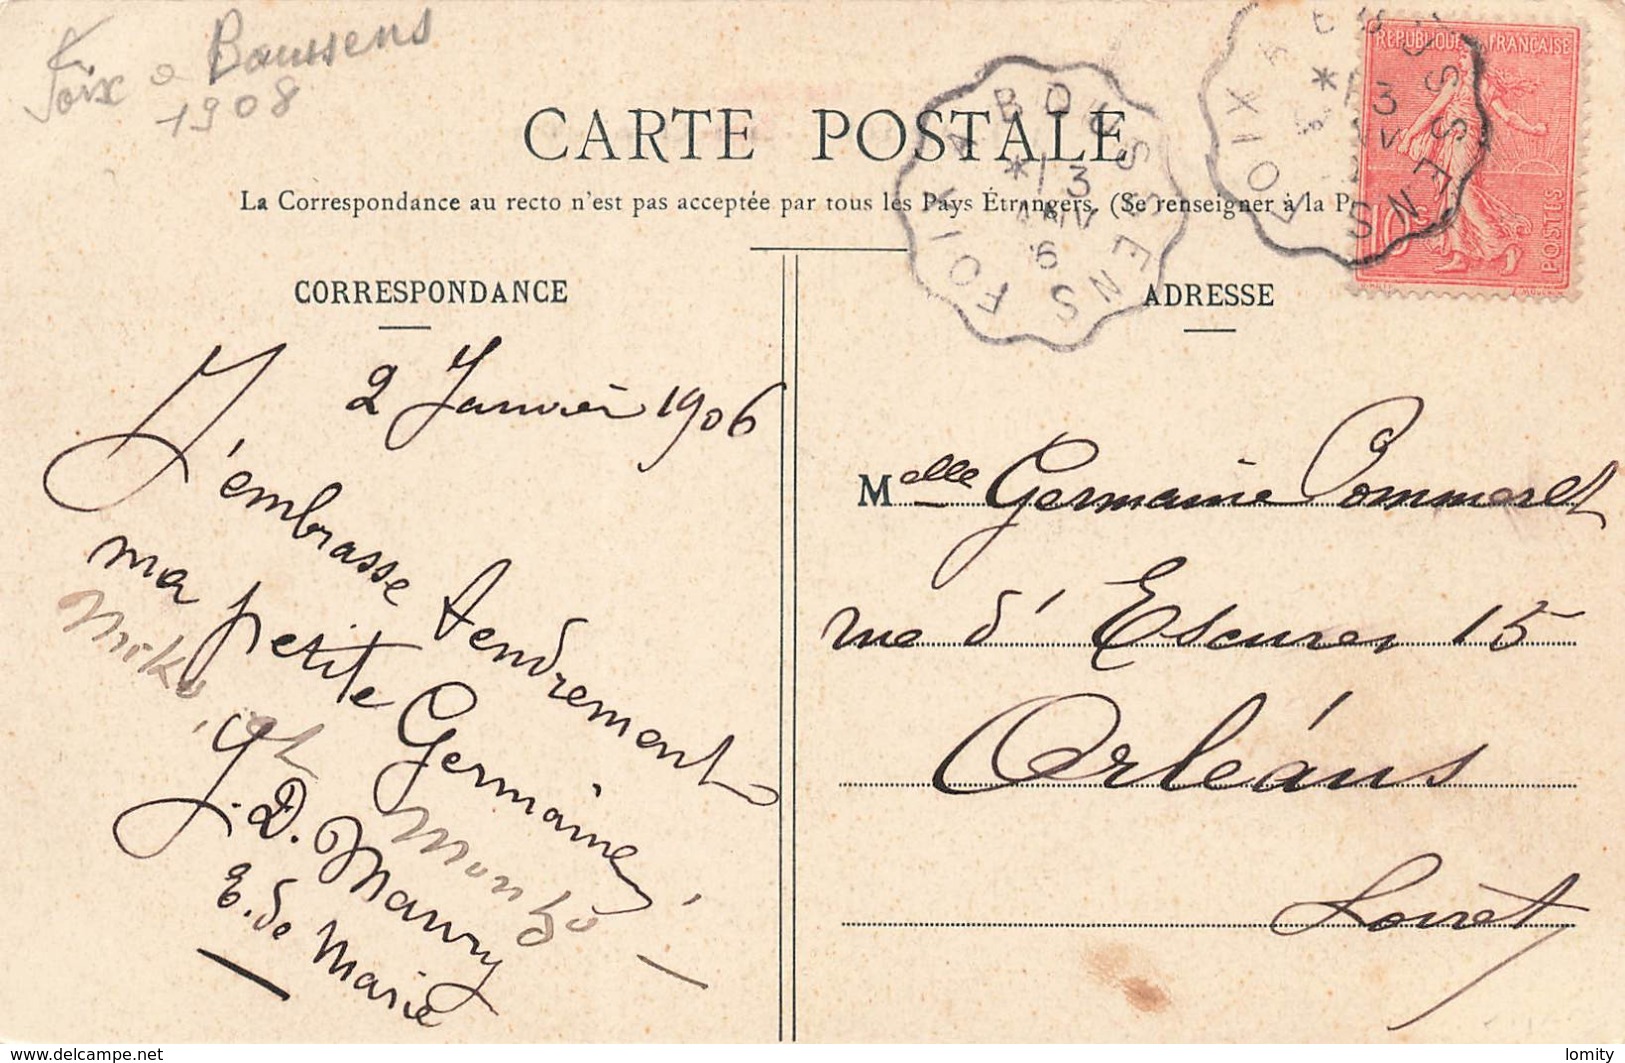 Foix a Boussens
1908
CARTE POSTALE
La Correspondance au recto n'est pas acceptée par tous les Pays Étrangers. (Se renseigner à la P
FOIX A BOUSSENS
*13
JANV
6
FOIX A BOUSSENS
*13
REPUBLIQUE FRANÇAISE
10c
POSTES
CORRESPONDANCE
2 Janvier 1906
J'embrasse tendrement
ma petite Germaine
Miko, et Monzo
J. D. Maury
E. de Marie
ADRESSE
Melle Germaine Pommeret
rue d'Escures 15
Orléans
Loiret
www.delcampe.net
lomity